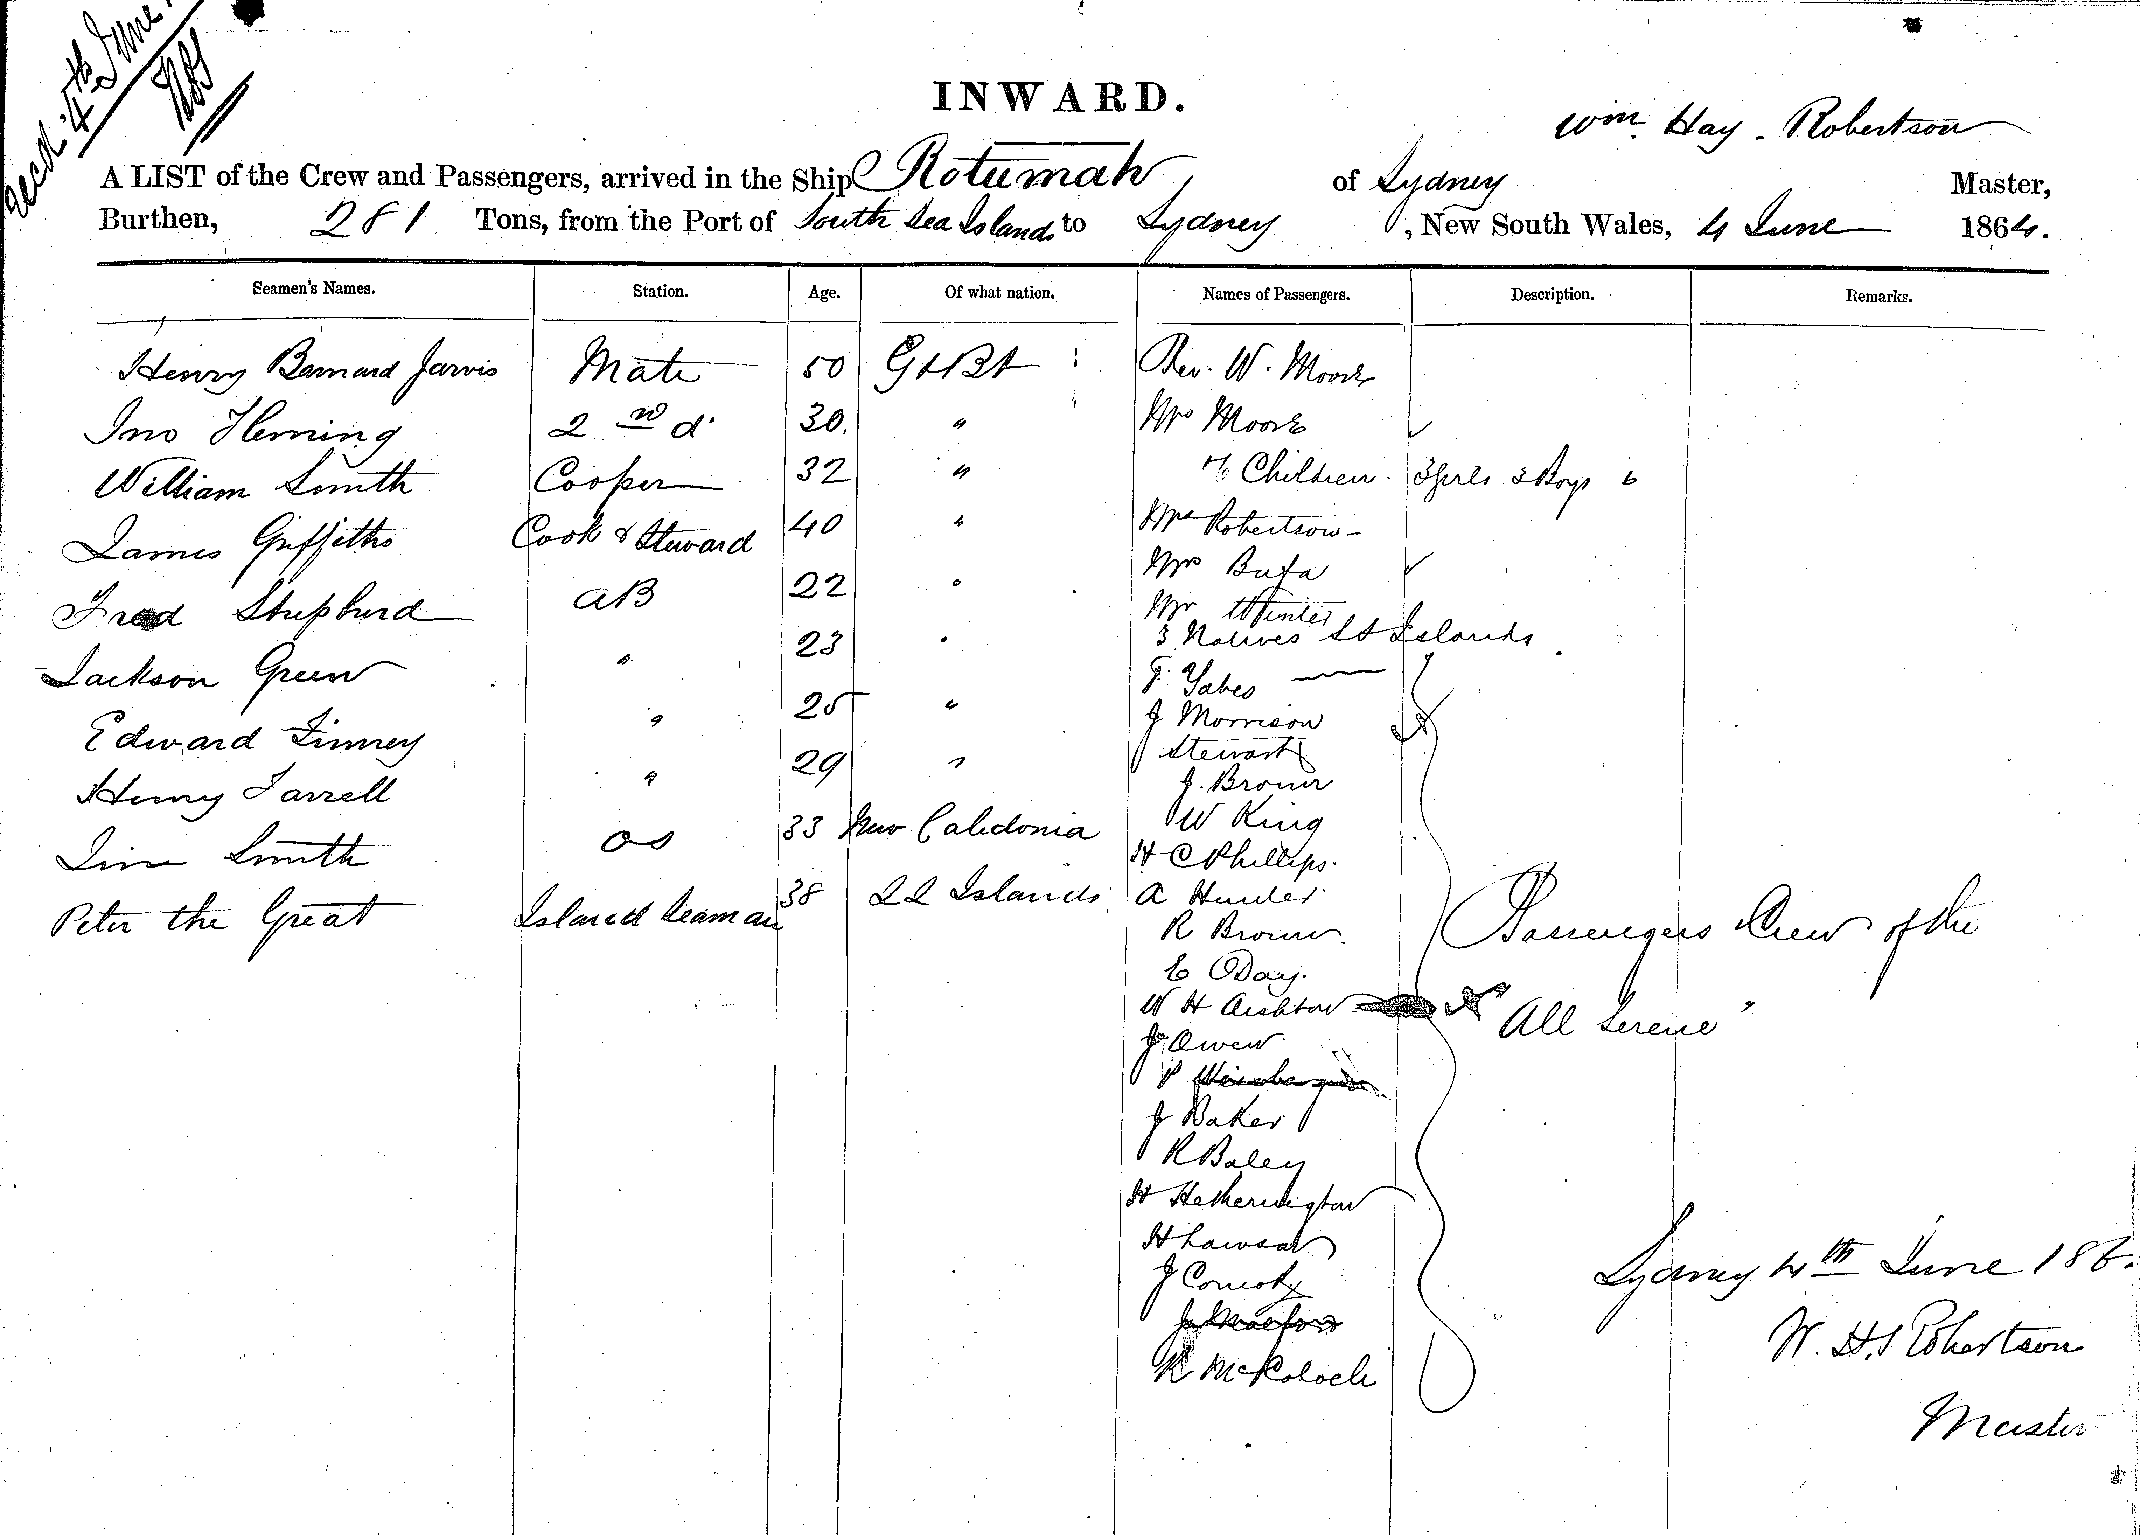 Recd. 4th June
INWARD.
Wm. Hay. Robertson
A LIST of the Crew and Passengers, arrived in the Ship Rotumah of Sydney Master,
Burthen, 281 Tons, from the Port of South Sea Islands to Sydney, New South Wales, 4 June 1864.
Seamen's Names. Station. Age. Of what nation. Names of Passengers. Description. Remarks.
Henry Barnard Jarvis Mate 50 Gt Bt Rev. W. Moore
Jno Fleming 2nd d. 30. " Mrs Moore
William Smith Cooper 32 " Children. 3 Girls 3 Boys 6
James Griffiths Cook & Steward 40 " Mrs Robertson
Fred Shepherd AB 22 " Mrs Bufa
Mr Winter
3 Natives SS Islands
Jackson Green " 23 "
F. Yabes
Edward Finney " 25 " J Morrison
Stewart
Henry Farrell " 29 " J. Brown
W King
Jim Smith OS 33 New Caledonia
H C Phillips.
Peter the Great Island Seaman 38 SS Islands A Hunter
R Brown. Passengers Crew of the
E Day.
W H Aishton "All Serene"
J Owen
P
J Baker
R Baley
H Hetherington
H Lawson
J
R McKoloch
Sydney 4th June 186
W. H. Robertson
Master